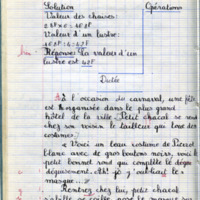 Solution Opérations
Valeur des chaises:
Valeur d'un lustre:
Réponse: La valeur d'un
lustre est
Dictée
A l'occasion du carnaval, une fête
est organisée dans le plus grand
hôtel de la ville. Petit chacal se rend
chez son voisin le tailleur qui loue des
costumes.
« Voici un beau costume de Pierrot
blanc avec de gros boutons noirs, voici le
petit bonnet noir qui complète le
déguisement. Ah! j'oubliait le
masque.
Rentré chez lui, petit chacal